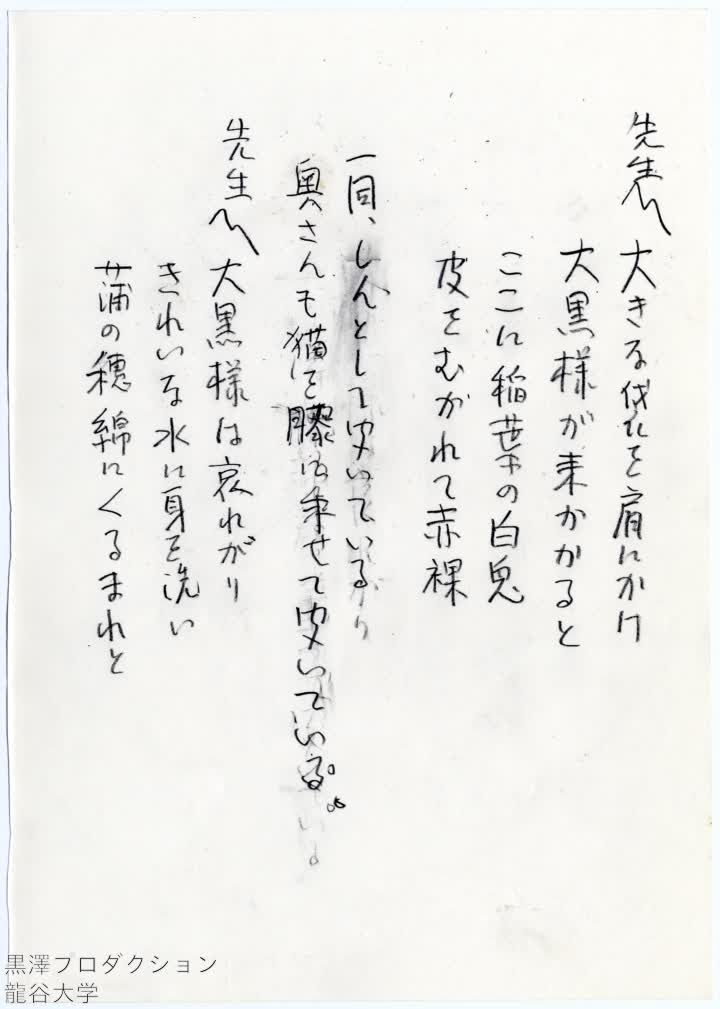 先生へ 大きな袋を肩にかけ
大黒様が来かかると
ここに稲葉の白兎
皮をむがれて赤裸
一同、しんとして聞いている
奥さんも猫を膝に乗せて聞いている。
先生へ 大黒様は哀れがり
きれいな水に身を洗い
蒲の穂綿にくるまれと
黒澤プロダクション
龍谷大学